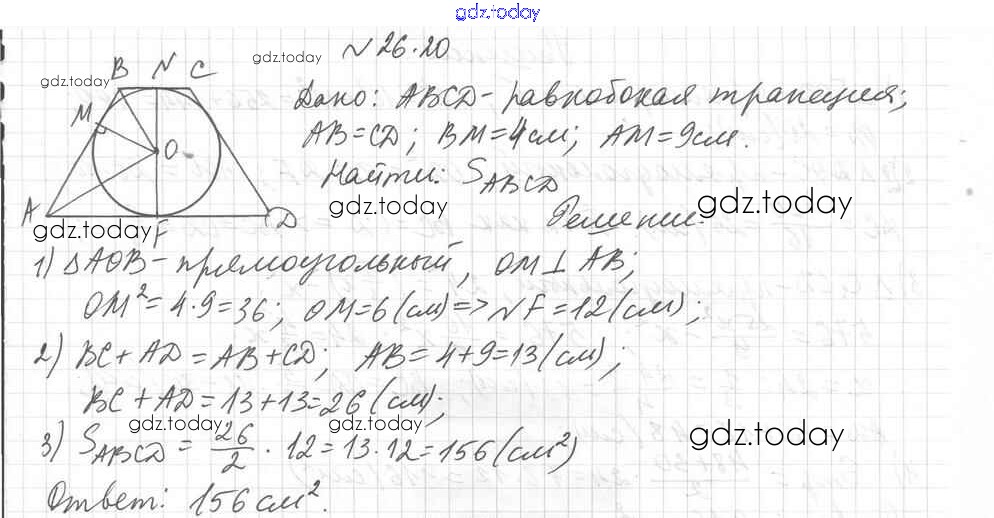 gdz.today
№ 26.20
B N C
gdz.today
gdz.today
M
O
A
F
D
gdz.today
Дано: ABCD - равнобокая трапеция;
AB = CD; BM = 4 см; AM = 9 см.
Найти: S_ABCD
gdz.today
gdz.today
Решение
1) △AOB - прямоугольный, OM ⊥ AB;
OM² = 4·9 = 36; OM = 6 (см) => NF = 12 (см);
2) BC + AD = AB + CD; AB = 4 + 9 = 13 (см);
BC + AD = 13 + 13 = 26 (см);
gdz.today
gdz.today
gdz.today
3) S_ABCD = 26/2 · 12 = 13·12 = 156 (см²)
Ответ: 156 см².